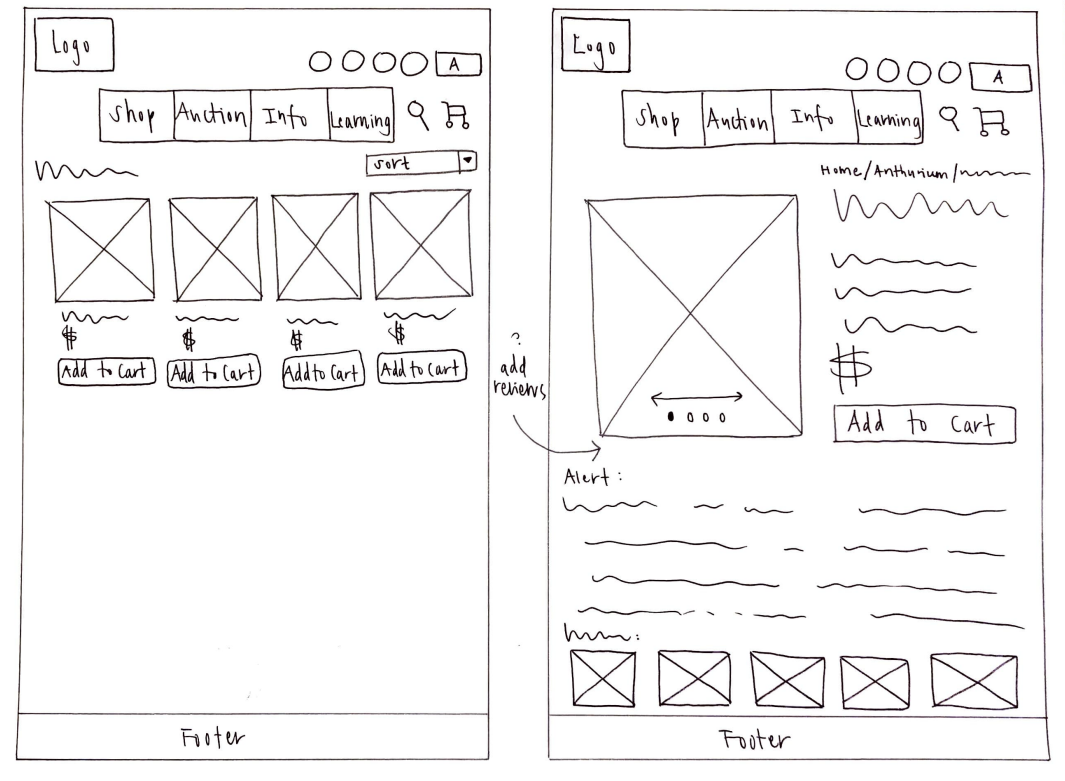 Logo
A
Shop Auction Info Learning
sort
$ $ $ $
Add to Cart Add to Cart Add to Cart Add to Cart
Footer
?
add
reviews
Logo
A
Shop Auction Info Learning
Home/Anthurium/
$
Add to Cart
Alert:
Footer